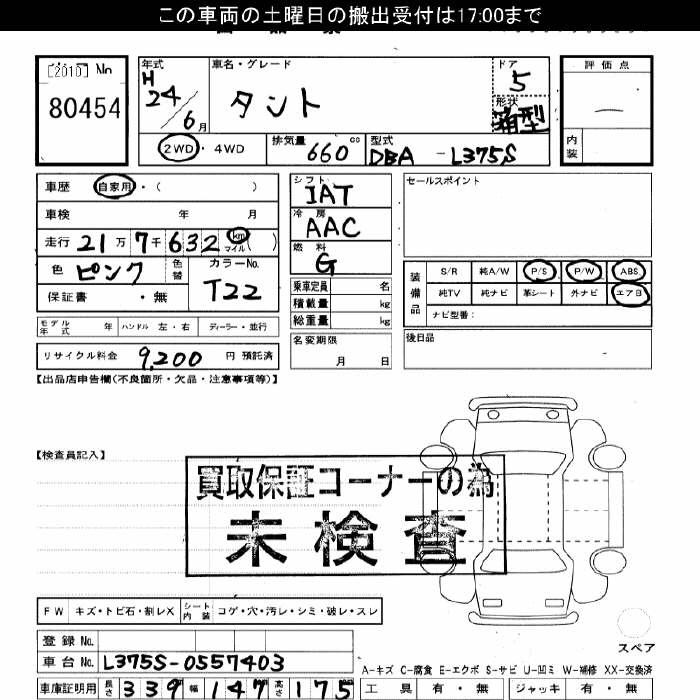 この車両の土曜日の搬出受付は17:00まで
[2010] No
80454
年式 H 24/6月
車名・グレード タント
ドア 5
形状 箱型
評価点 —
内装
2WD ・ 4WD
排気量 660 cc
型式 DBA - L375S
車歴 自家用・( )
車検 年 月
走行 21万7千632 km マイル ( )
色 ピンク 色替 カラーNo. T22
保証書 ・ 無
モデル年式 年 ハンドル 左・右 ディーラー・並行
リサイクル料金 9,200 円 預託済
シフト IAT
冷房 AAC
燃料 G
乗車定員 名
積載量 kg
総重量 kg
名変期限 月 日
セールスポイント
装備品
S/R 純A/W P/S P/W ABS
純TV 純ナビ 革シート 外ナビ エアB
ナビ型番:
後日品
【出品店申告欄(不良箇所・欠品・注意事項等)】
【検査員記入】
買取保証コーナーの為
未検査
FW キズ・トビ石・割レX シート内装 コゲ・穴・汚レ・シミ・破レ・スレ
登録 No.
車台 No. L375S-0557403
車庫証明用 長さ 339 幅 147 高さ 175
スペア
A-キズ C-腐食 E-エクボ S-サビ U-凹ミ W-補修 XX-交換済
工具 有・無 ジャッキ 有・無